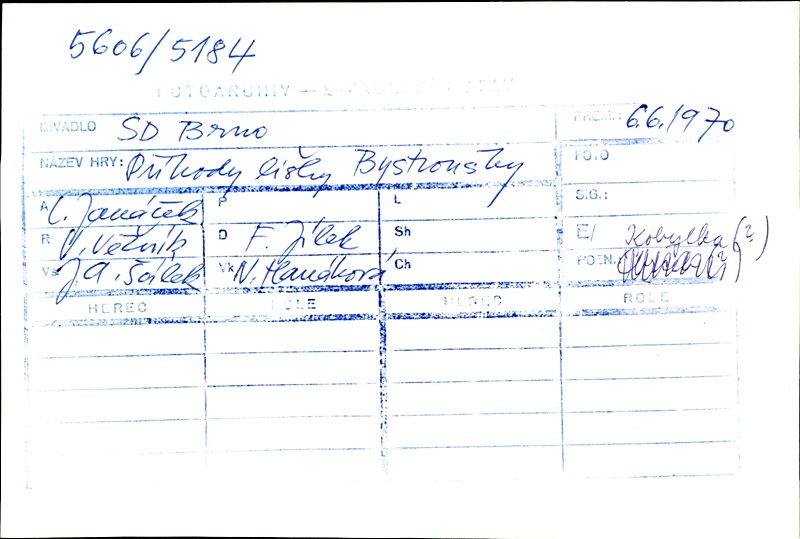 5606/5184
FOTOARCHIV — DIVADELNÍ
DIVADLO SD Brno PREM.: 6.6.1970
NÁZEV HRY: Příhody lišky Bystroušky FOTO
A L. Janáček P L SIG.:
R V. Věžník D F. Jílek Sh E/ Kobylka (?)
Vs J. A. Šálek Vk N. Hanáková Ch POZN.
HEREC ROLE HEREC ROLE